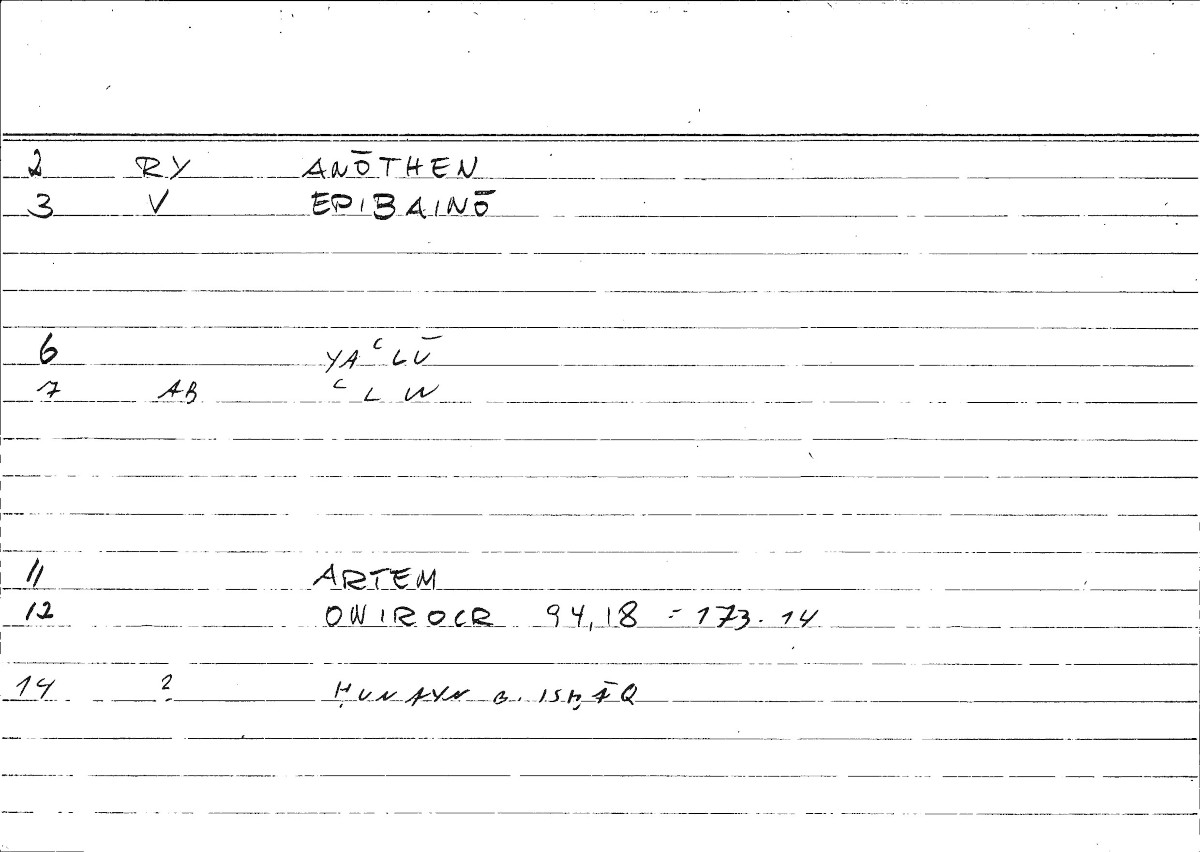 2 RY ANŌTHEN
3 V EPIBAINŌ
6 YAʿLŪ
7 AB ʿLW
11 ARTEM
12 ONIROCR 94,18 = 173.14
14 ? ḤUNAYN B. ISḤĀQ